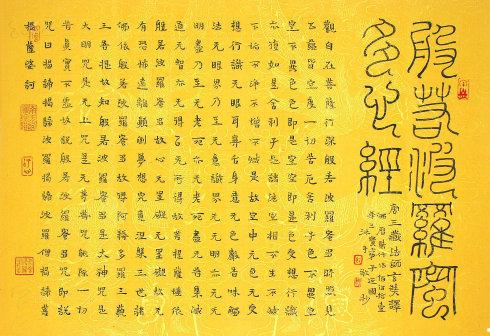 般若波羅蜜
多心經
唐三藏法師玄奘譯
觀自在菩薩行深般若波羅蜜多時照見
五蘊皆空度一切苦厄舍利子色不異空
空不異色色即是空空即是色受想行識
亦復如是舍利子是諸法空相不生不滅
不垢不淨不增不減是故空中无色无受
想行識无眼耳鼻舌身意无色聲香味觸
法无眼界乃至无意識界无无明亦无无
明盡乃至无老死亦无老死盡无苦集滅
道无智亦无得以无所得故菩提薩埵依
般若波羅蜜多故心无罣礙无罣礙故无
有恐怖遠離顛倒夢想究竟涅槃三世諸
佛依般若波羅蜜多故得阿耨多羅三藐
三菩提故知般若波羅蜜多是大神咒是
大明咒是无上咒是无等等咒能除一切
苦真實不虛故說般若波羅蜜多咒即說
咒曰揭諦揭諦波羅揭諦波羅僧揭諦菩
提薩婆訶